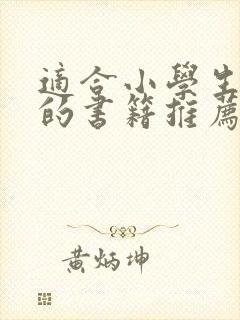 適合小學生
的書籍推薦
黃炳坤